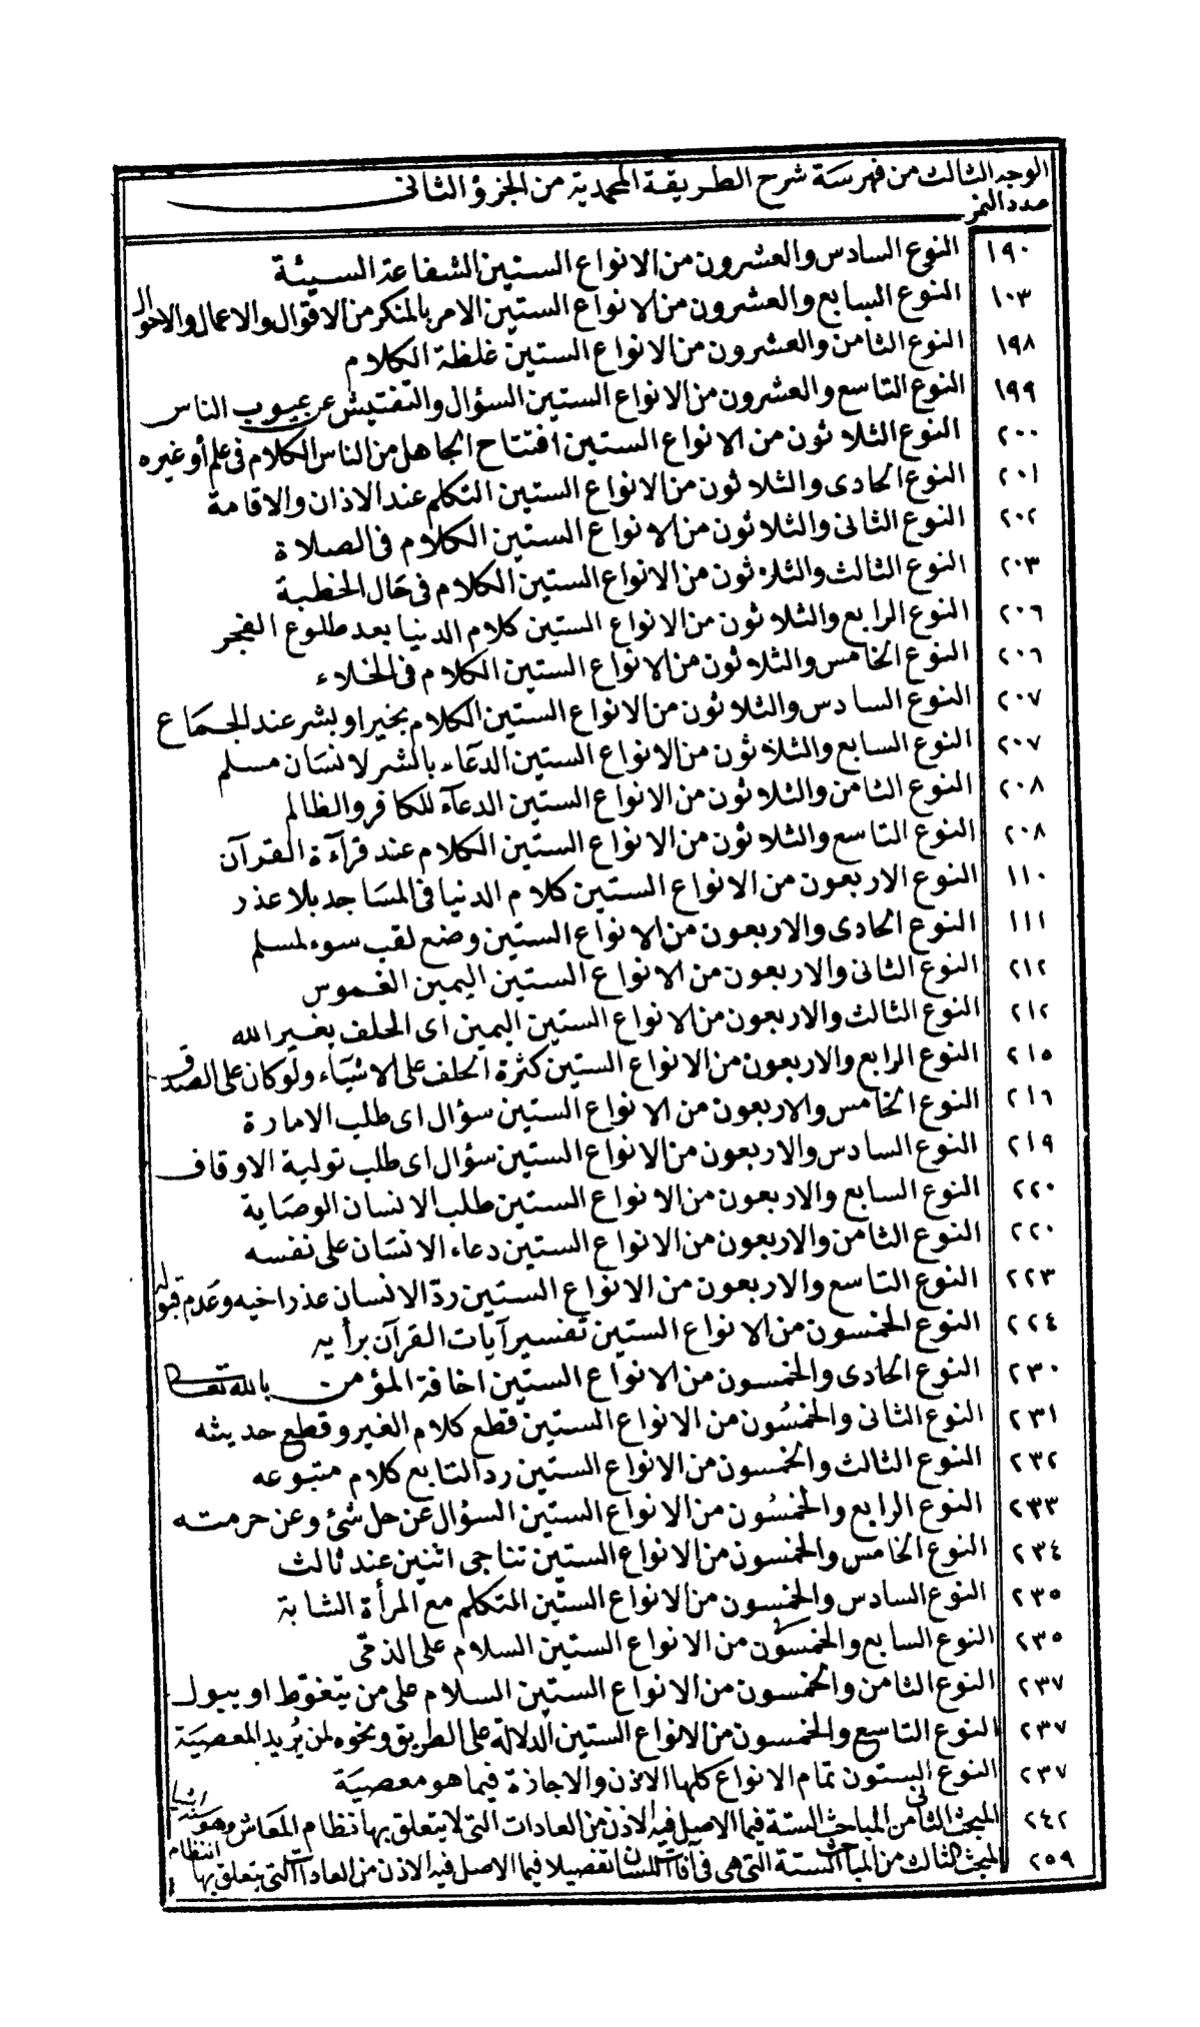 الوجه الثالث من فهرسة شرح الطريقة المحمدية من الجزؤ الثانى
عدد النمر
١٩٠ النوع السادس والعشرون من الانواع الستين الشفاعة السيئة
١٠٣ النوع السابع والعشرون من الانواع الستين الامر بالمنكر من الاقوال والاعمال والاحوال
١٩٨ النوع الثامن والعشرون من الانواع الستين غلظة الكلام
١٩٩ النوع التاسع والعشرون من الانواع الستين السؤال والتفتيش عن عيوب الناس
٢٠٠ النوع الثلاثون من الانواع الستين افتتاح الجاهل من الناس الكلام فى علم أو غيره
٢٠١ النوع الحادى والثلاثون من الانواع الستين التكلم عند الاذان والاقامة
٢٠٢ النوع الثانى والثلاثون من الانواع الستين الكلام فى الصلاة
٢٠٣ النوع الثالث والثلاثون من الانواع الستين الكلام فى حال الخطبة
٢٠٦ النوع الرابع والثلاثون من الانواع الستين كلام الدنيا بعد طلوع الفجر
٢٠٦ النوع الخامس والثلاثون من الانواع الستين الكلام فى الخلاء
٢٠٧ النوع السادس والثلاثون من الانواع الستين الكلام بخير او بشر عند الجماع
٢٠٧ النوع السابع والثلاثون من الانواع الستين الدعاء بالشر لانسان مسلم
٢٠٨ النوع الثامن والثلاثون من الانواع الستين الدعآء للكافر والظالم
٢٠٨ النوع التاسع والثلاثون من الانواع الستين الكلام عند قرآءة القرآن
١١٠ النوع الاربعون من الانواع الستين كلام الدنيا فى المساجد بلا عذر
١١١ النوع الحادى والاربعون من الانواع الستين وضع لقب سوء لمسلم
٢١٢ النوع الثانى والاربعون من الانواع الستين اليمين الغموس
٢١٢ النوع الثالث والاربعون من الانواع الستين اليمين اى الحلف بغير الله
٢١٥ النوع الرابع والاربعون من الانواع الستين كثرة الحلف على الاشياء ولو كان على الصدق
٢١٦ النوع الخامس والاربعون من الانواع الستين سؤال اى طلب الامارة
٢١٩ النوع السادس والاربعون من الانواع الستين سؤال اى طلب تولية الاوقاف
٢٢٠ النوع السابع والاربعون من الانواع الستين طلب الانسان الوصاية
٢٢٠ النوع الثامن والاربعون من الانواع الستين دعاء الانسان على نفسه
٢٢٣ النوع التاسع والاربعون من الانواع الستين ردّ الانسان عذر اخيه وعدم قبوله
٢٢٤ النوع الخمسون من الانواع الستين تفسير آيات القرآن برأيه
٢٣٠ النوع الحادى والخمسون من الانواع الستين اخافة المؤمن بالله تعالى
٢٣١ النوع الثانى والخمسون من الانواع الستين قطع كلام الغير وقطع حديثه
٢٣٢ النوع الثالث والخمسون من الانواع الستين رد التابع كلام متبوعه
٢٣٣ النوع الرابع والخمسون من الانواع الستين السؤال عن حل شئ وعن حرمته
٢٣٤ النوع الخامس والخمسون من الانواع الستين تناجى اثنين عند ثالث
٢٣٥ النوع السادس والخمسون من الانواع الستين التكلم مع المرأة الشابة
٢٣٥ النوع السابع والخمسون من الانواع الستين السلام على الذمّى
٢٣٧ النوع الثامن والخمسون من الانواع الستين السلام على من يتغوّط او يبول
٢٣٧ النوع التاسع والخمسون من الانواع الستين الدلالة على الطريق ونحوه لمن يُريد المعصية
٢٣٧ النوع الستون تمام الانواع كلها الاذن والاجازة فيما هو معصية
٢٤٢ المبحث الثانى من المباحث الستة فيما الاصل فيه الاذن من العادات التى لا يتعلق بها نظام المعاش وهو ستة اشيا
٢٥٩ المبحث الثالث من المباحث الستة التى هى فى آفات اللسان تفصيلا فيما الاصل فيه الاذن من العادات التى يتعلق بها انتظام